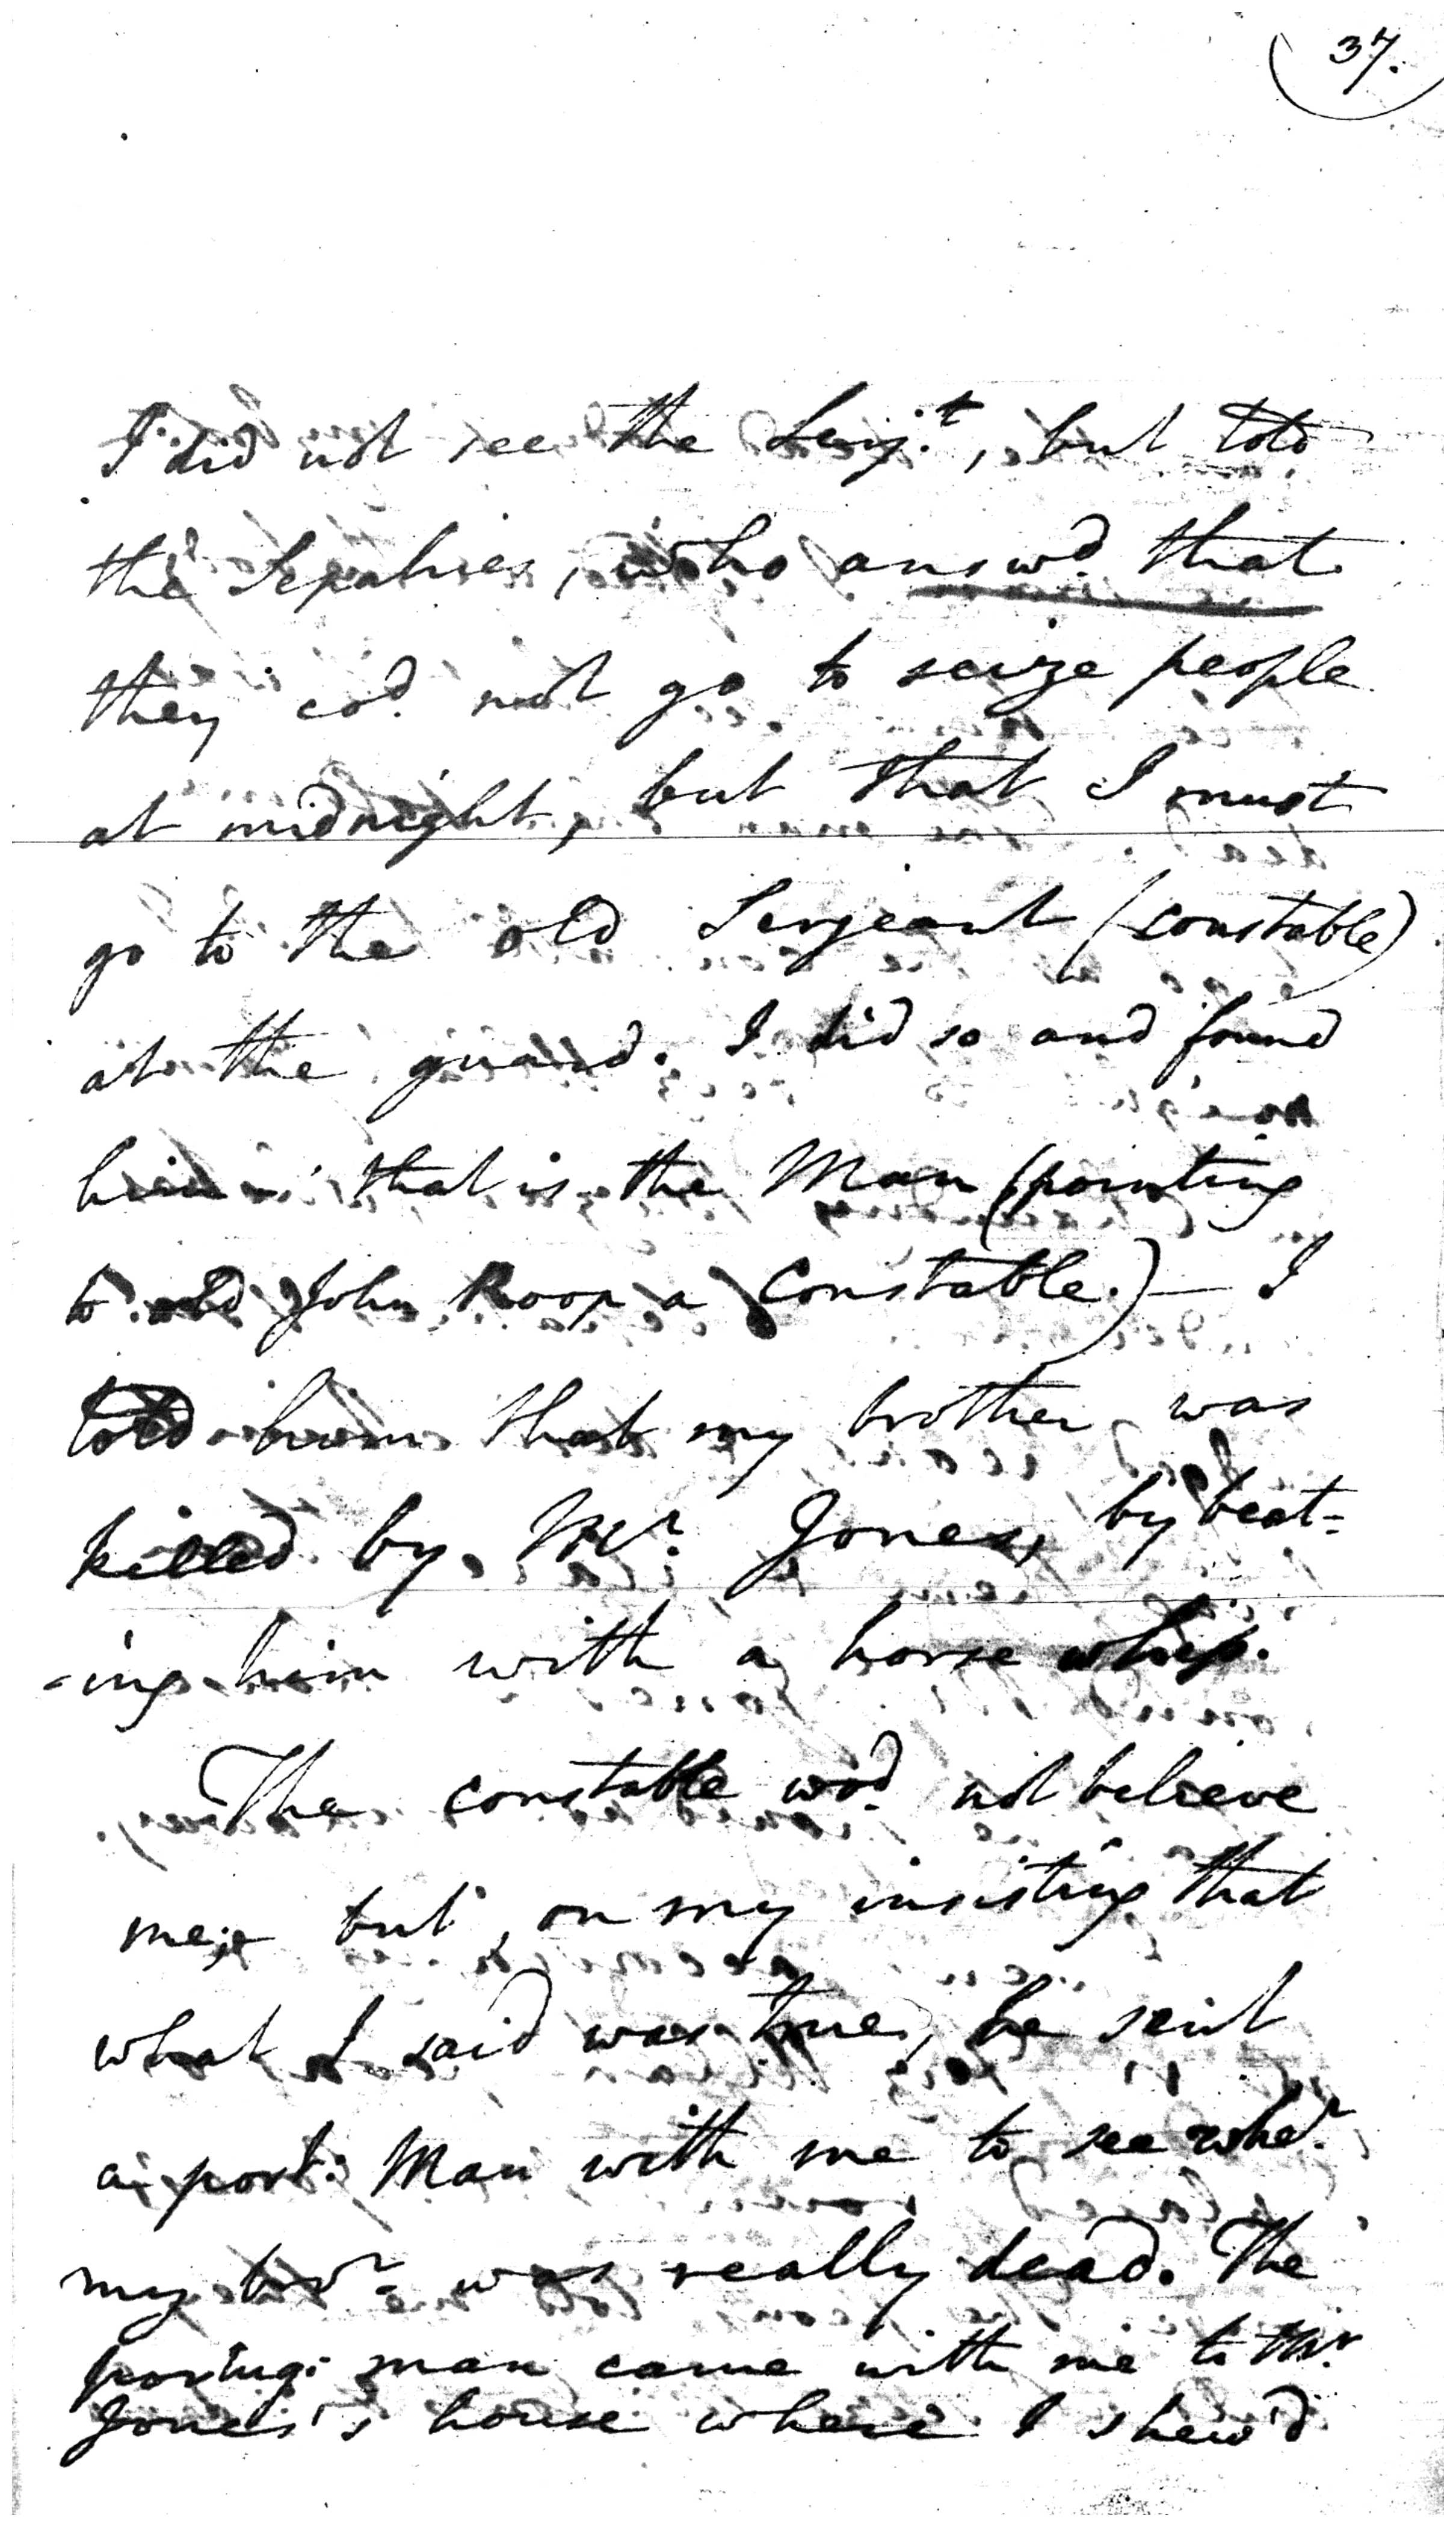 37.
I did not see the Serj.t, but told
the Sepahies, who answd. that
they cod. not go to seize people
at midnight, but that I must
go to the old Serjeant (constable)
at the guard. I did so and found
him - that is the Man (pointing
to old John Roop a Constable.) — I
told him that my brother was
killed by Mr. Jones, by beat=
-ing him with a horse whip.
The constable wod. not believe
me; but, on my insisting that
what I said was true, he sent
a port: Man with me to see wher.
my bror. was really dead. The
portug: man came with me to Mr.
Jones's house where I shew'd